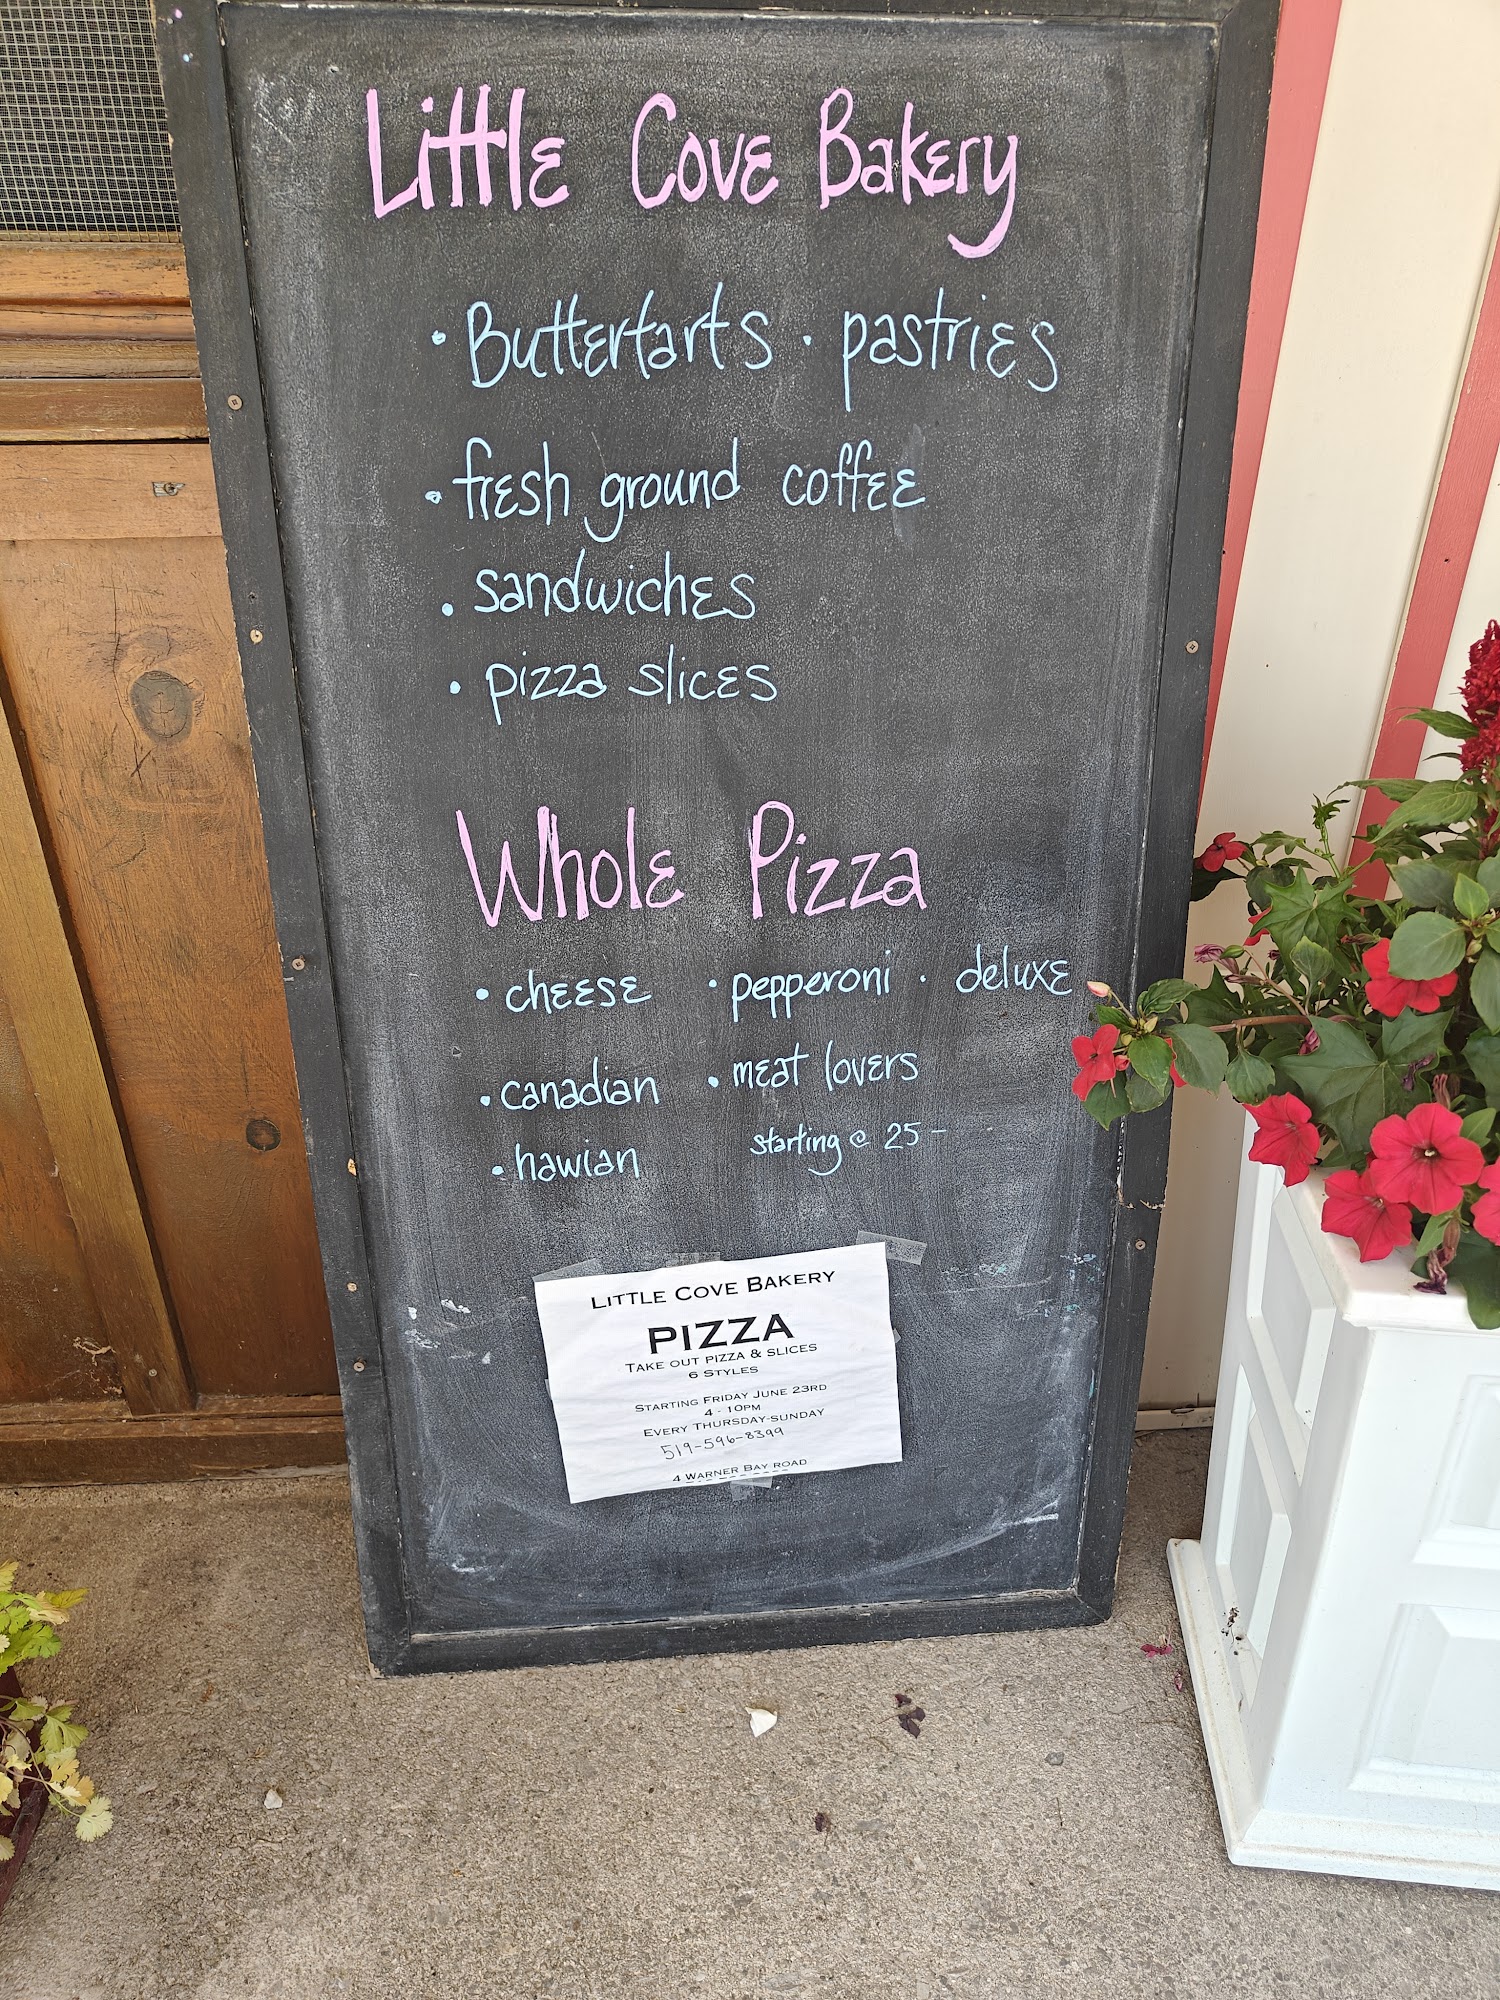 Little Cove Bakery
• Buttertarts • pastries
• fresh ground coffee
• sandwiches
• pizza slices
Whole Pizza
• cheese • pepperoni • deluxe
• canadian • meat lovers
• hawian starting @ 25 -
LITTLE COVE BAKERY
PIZZA
TAKE OUT PIZZA & SLICES
6 STYLES
STARTING FRIDAY JUNE 23RD
4 - 10PM
EVERY THURSDAY-SUNDAY
519-596-8399
4 WARNER BAY ROAD